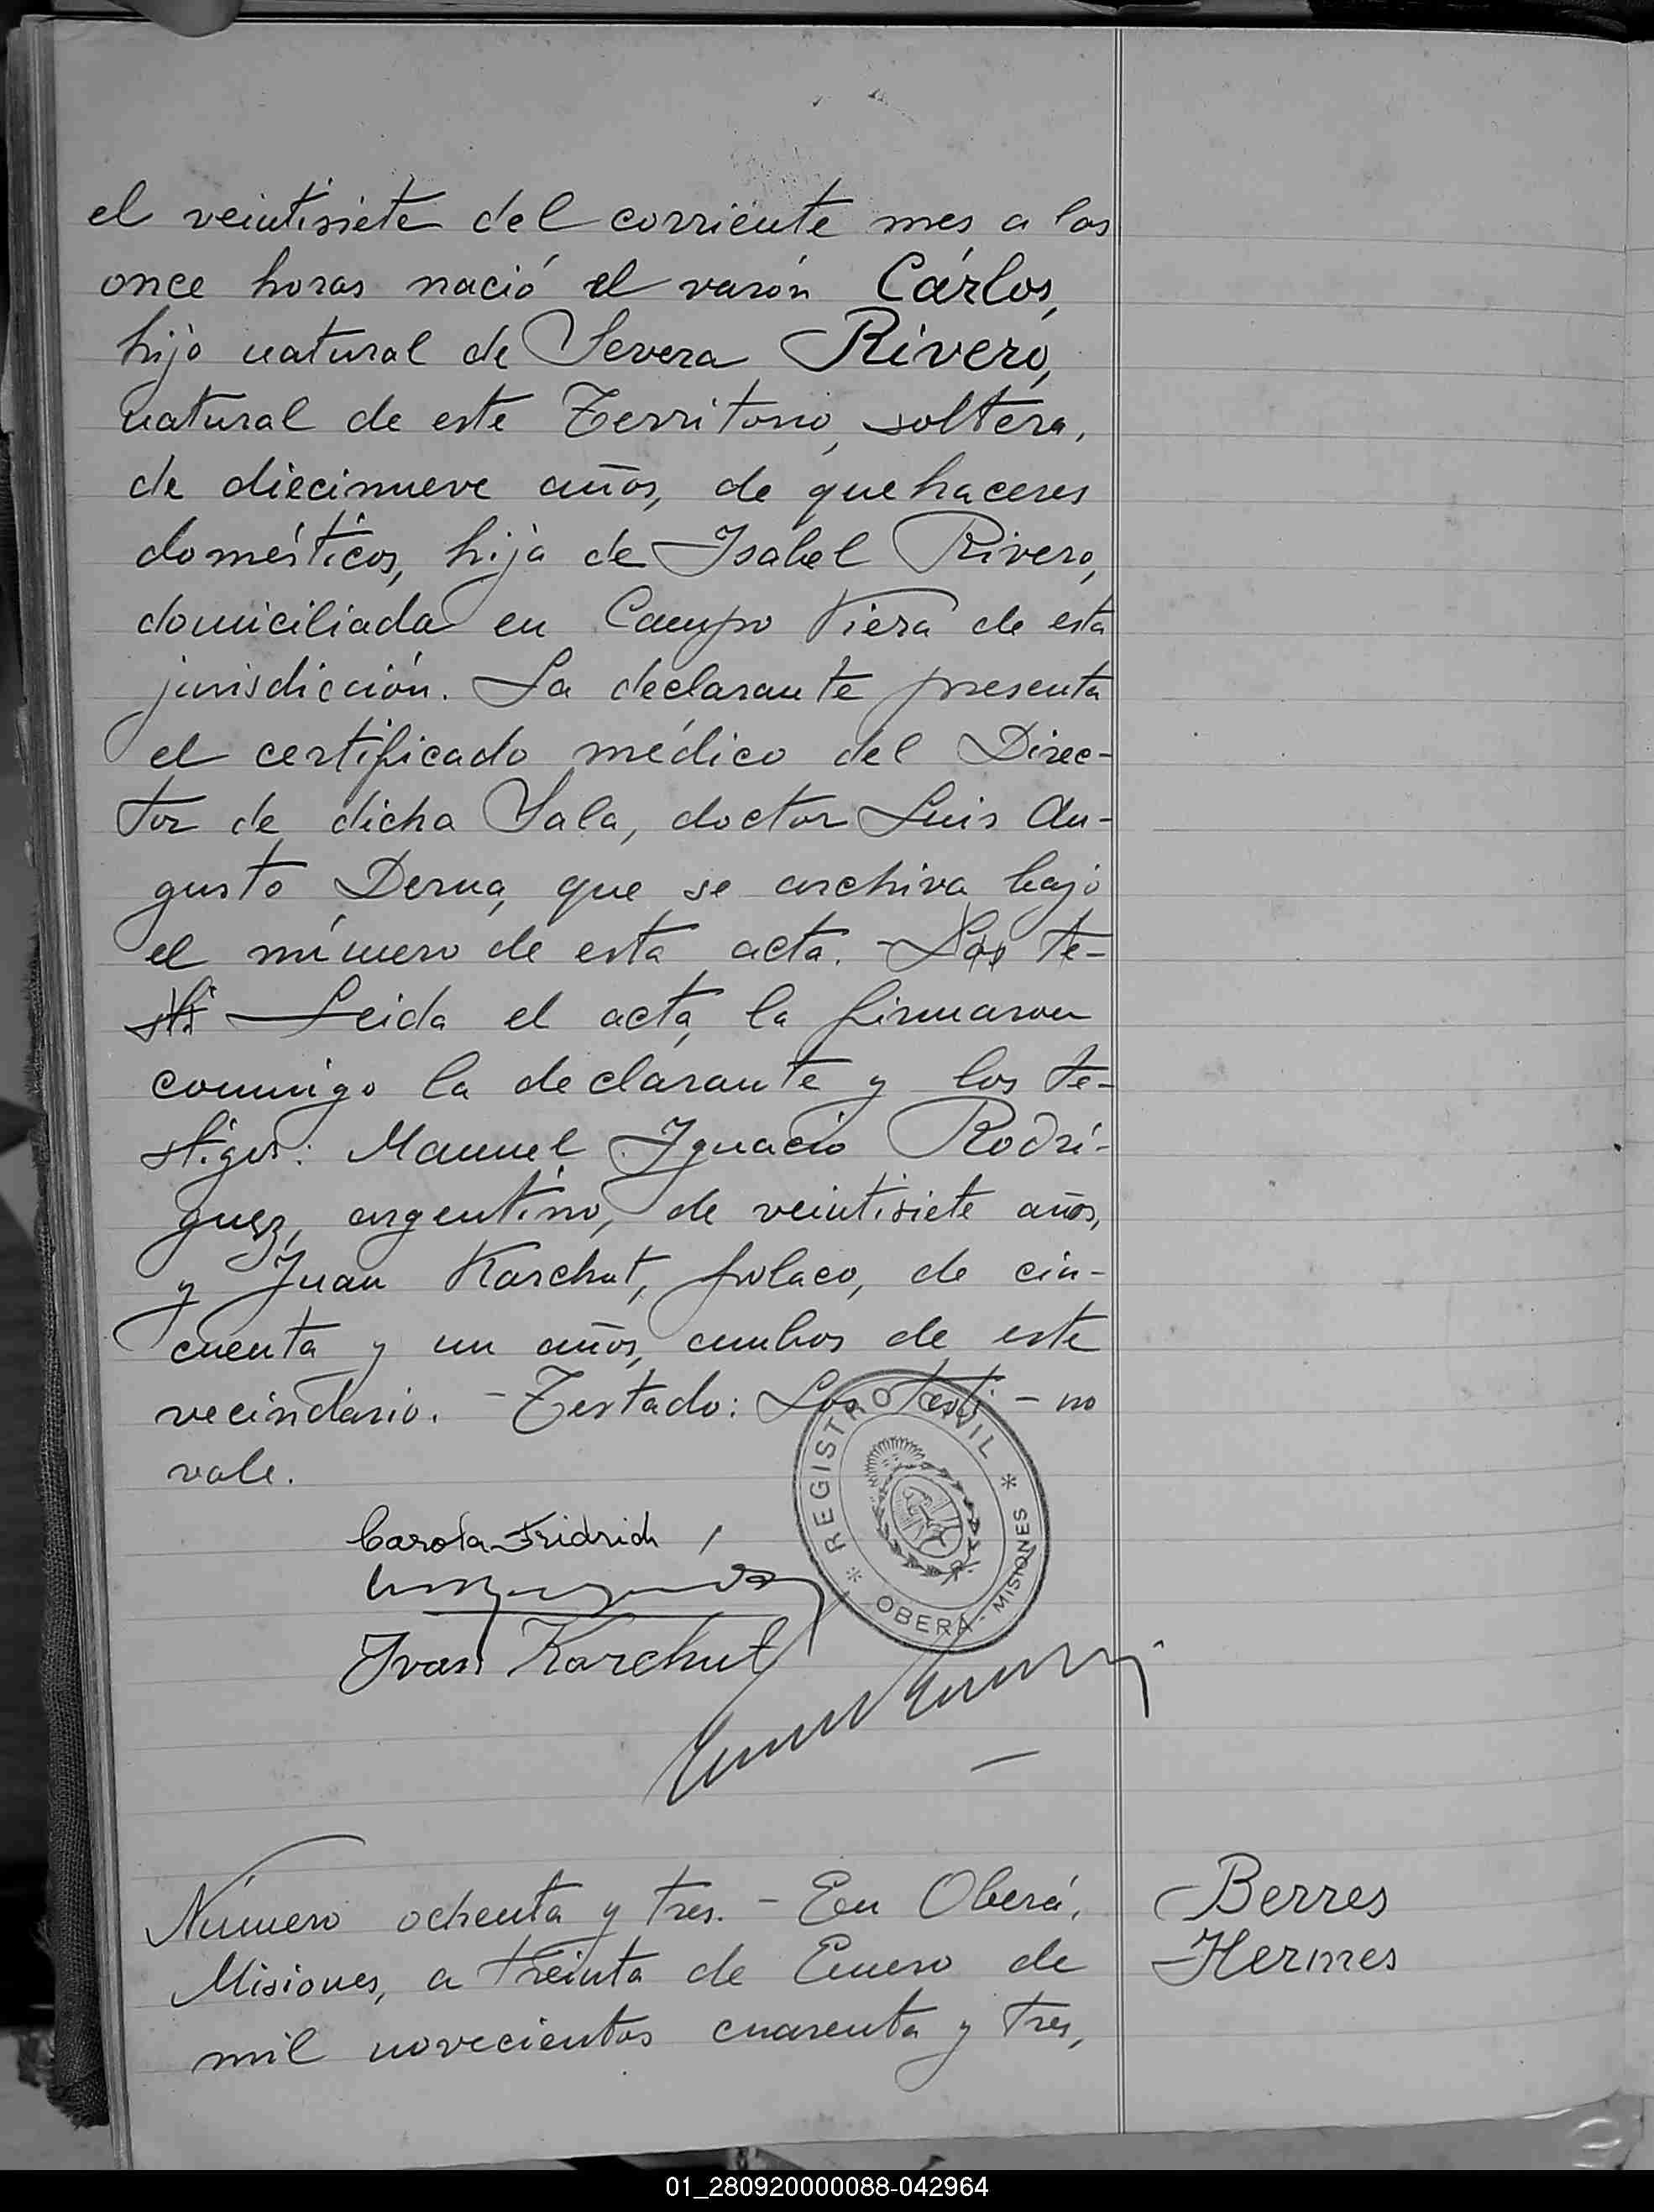 el veintisiete del corriente mes a las
once horas nació el varón Cárlos,
hijo natural de Severa Rivero,
natural de este Territorio, soltera,
de diecinueve años, de quehaceres
domésticos, hija de Isabel Rivero,
domiciliada en Campo Viera de esta
jurisdicción. La declarante presenta
el certificado médico del Direc-
tor de dicha Sala, doctor Luis Au-
gusto Derna, que se archiva bajo
el número de esta acta. - Los te-
sti Leida el acta, la firmaron
conmigo la declarante y los te-
stigos: Manuel Ignacio Rodrí-
guez, argentino, de veintisiete años,
y Juan Karchut, polaco, de cin-
cuenta y un años, ambos de este
vecindario. - Testado: Los testi - no
vale.
REGISTRO CIVIL
OBERA - MISIONES
Carola Fridrich
Ivan Karchut
Número ochenta y tres. - En Oberá,
Misiones, a treinta de Enero de
mil novecientos cuarenta y tres,
Berres
Hermes
01_280920000088-042964